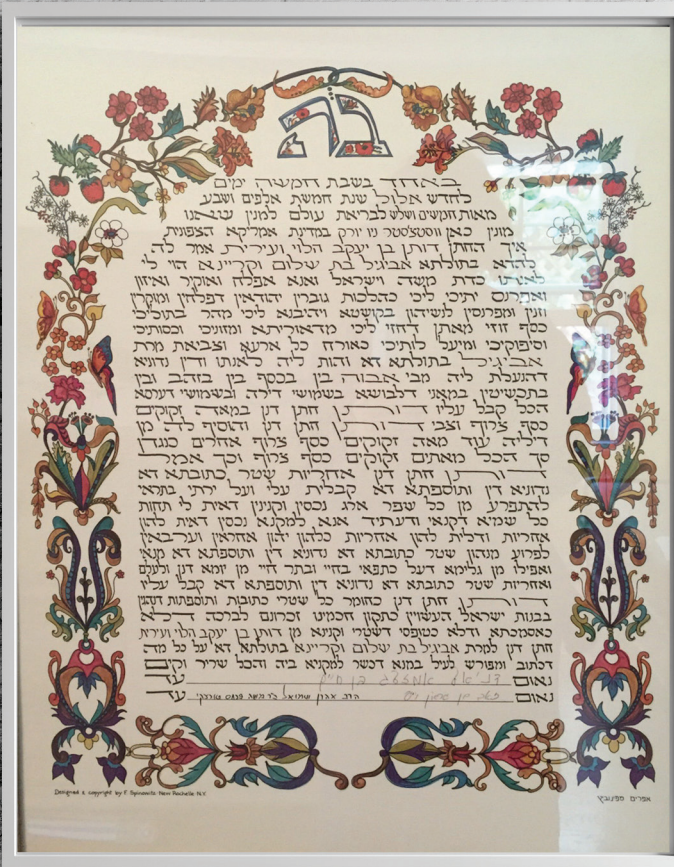 בה
באחד בשבת חמשה ימים
לחדש אלול שנת חמשת אלפים ושבע
מאות חמשים ושלש לבריאת עולם למנין שאנו
מונין כאן ווסטצסטר ניו יורק במדינת אמריקא הצפונית
איך החתן דותן בן יעקב הלוי ועירית אמר לה
להדא בתולתא אביגיל בת שלום וקריינא הוי לי
לאנתו כדת משה וישראל ואנא אפלח ואוקיר ואיזון
ואפרנס יתיכי ליכי כהלכות גוברין יהודאין דפלחין ומוקרין
וזנין ומפרנסין לנשיהון בקושטא ויהיבנא ליכי מהר בתוליכי
כסף זוזי מאתן דחזי ליכי מדאוריתא ומזוניכי וכסותיכי
וסיפוקיכי ומיעל לותיכי כאורח כל ארעא וצביאת מרת
אביגיל בתולתא דא והות ליה לאנתו ודין נדוניא
דהנעלת ליה מבי אבוה בין בכסף בין בזהב ובין
בתכשיטין במאני דלבושא בשמושי דירה ובשמושי דערסא
הכל קבל עליו דותן חתן דנן במאה זקוקים
כסף צרוף וצבי דותן חתן דנן והוסיף לה מן
דיליה עוד מאה זקוקים כסף צרוף אחרים כנגדן
סך הכל מאתים זקוקים כסף צרוף וכך אמר
דותן חתן דנן אחריות שטר כתובתא דא
נדוניא דין ותוספתא דא קבלית עלי ועל ירתי בתראי
להתפרע מן כל שפר ארג נכסין וקנינין דאית לי תחות
כל שמיא דקנאי ודעתיד אנא למקנא נכסין דאית להון
אחריות ודלית להון אחריות כלהון יהון אחראין וערבאין
לפרוע מנהון שטר כתובתא דא נדוניא דין ותוספתא דא מנאי
ואפילו מן גלימא דעל כתפאי בחיי ובתר חיי מן יומא דנן ולעלם
ואחריות שטר כתובתא דא נדוניא דין ותוספתא דא קבל עליו
דותן חתן דנן כחומר כל שטרי כתובות ותוספתות דנהגין
בבנות ישראל העשויין כתקון חכמינו זכרונם לברכה דלא
כאסמכתא ודלא כטופסי דשטרי וקנינא מן דותן בן יעקב הלוי ועירית
חתן דנן למרת אביגיל בת שלום וקריינא בתולתא דא על כל מה
דכתוב ומפורש לעיל במנא דכשר למקניא ביה והכל שריר וקים
נאום עד
נאום הרב אהרן עד
Designed & copyright by F. Spinowitz New Rochelle N.Y.
אפרים ספינוביץ